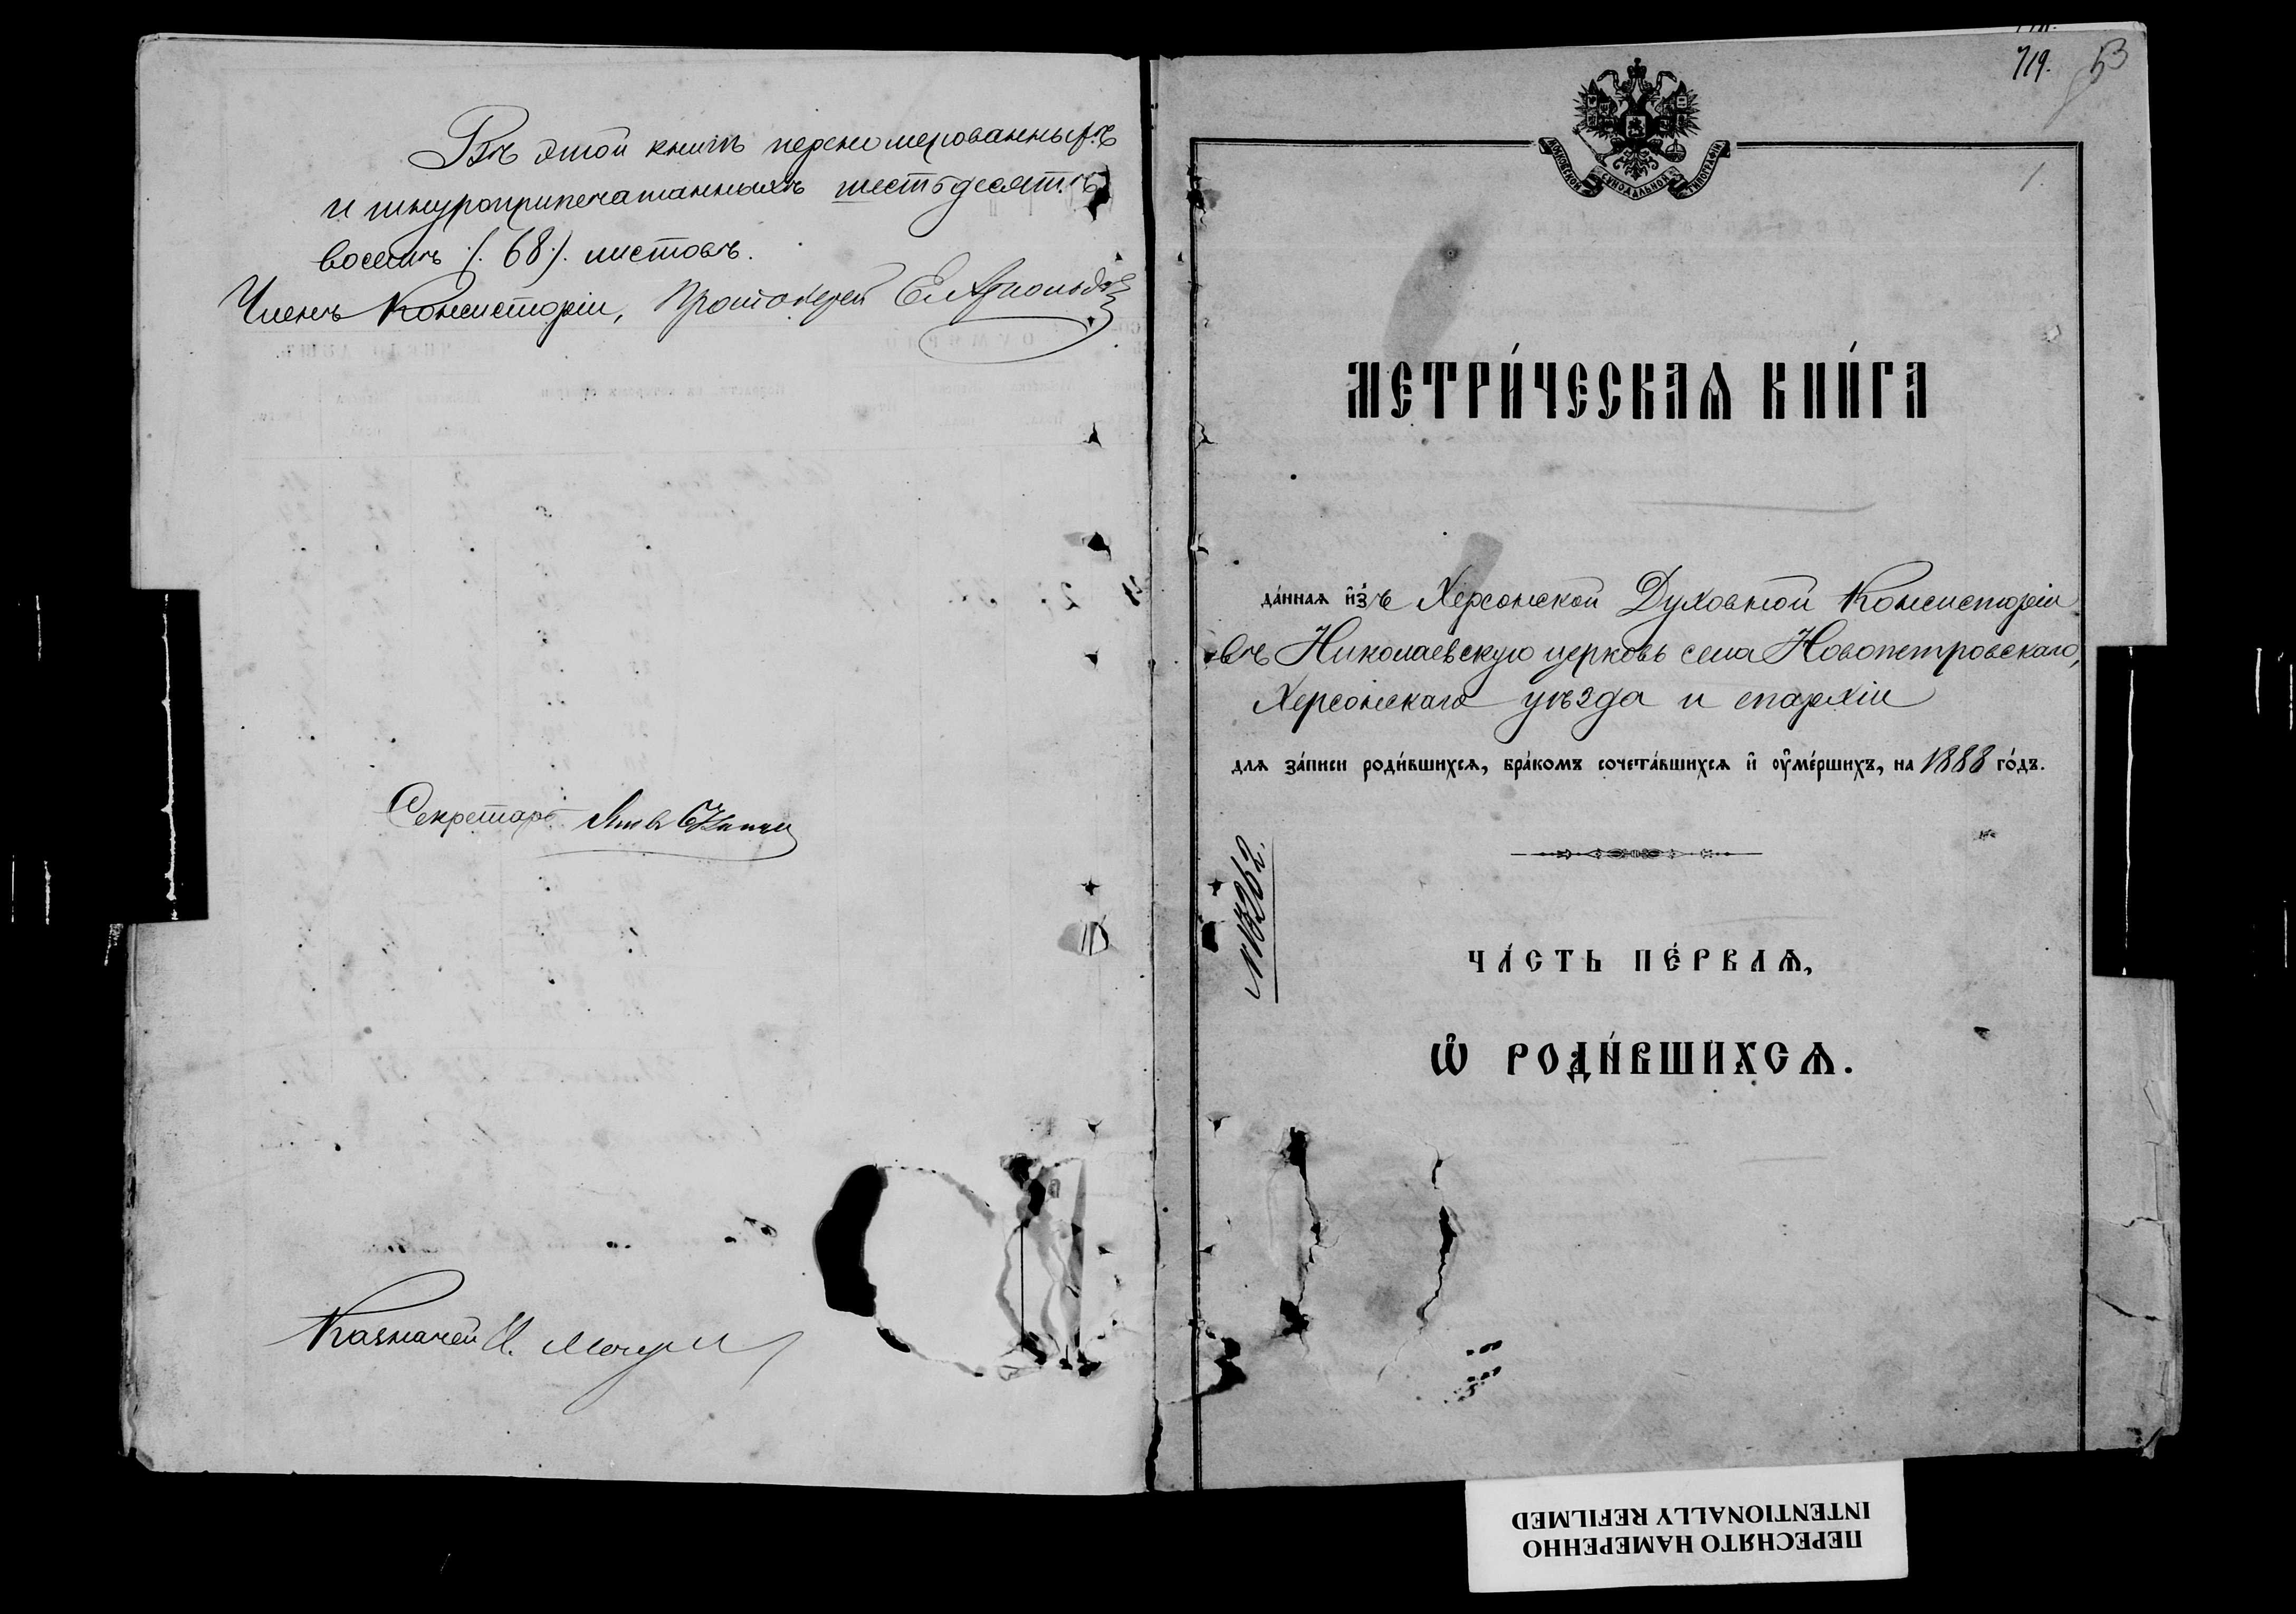 Въ этой книгѣ перенумерованныхъ
и шнуроприпечатанныхъ шестьдесятъ
восемь /. 68 /. листовъ.
Членъ Консисторіи, Протоіерей
Секретарь
Казначей И.
719. 53
1.
МОСКОВСКОЙ СѴНОДАЛЬНОЙ ТИПОГРАФІИ
МЕТРИ́ЧЕСКАѦ КНИ́ГА
да́нная и҆зъ Херсонской Духовной Консисторіи
въ Николаевскую церковь села Новопетровскаго,
Херсонскаго уѣзда и епархіи
для за́писи роди́вшихсѧ, бра́комъ сочета́вшихсѧ и҆ ᲂу҆ме́ршихъ, на 1888 го́дъ.
ЧА́СТЬ ПЕ́РВАѦ,
Ѡ҆ РОДИ́ВШИХСѦ.
ПЕРЕСНЯТО НАМЕРЕННО
INTENTIONALLY REFILMED